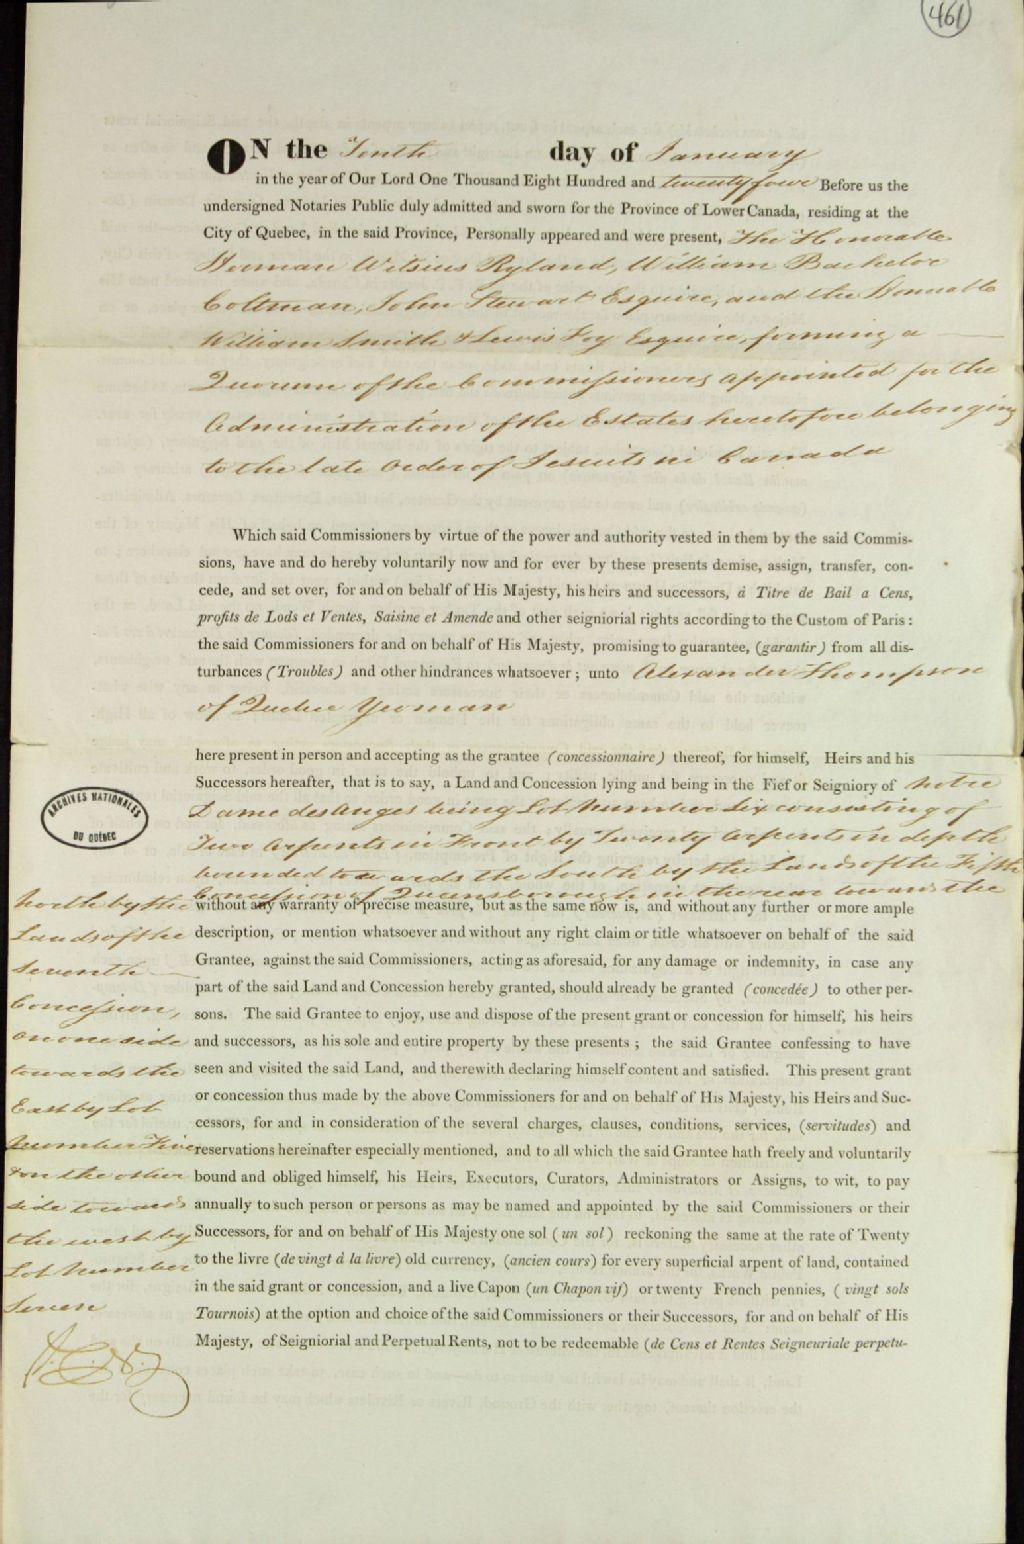 461
ON the Tenth day of January
in the year of Our Lord One Thousand Eight Hundred and twenty four Before us the
undersigned Notaries Public duly admitted and sworn for the Province of Lower Canada, residing at the
City of Quebec, in the said Province, Personally appeared and were present, The Honorable
Herman Witsius Ryland, William Bachelor
Coltman, John Stewart Esquire, and the Honorable
William Smith & Lewis Foy Esquire, forming a
Quorum of the Commissioners appointed for the
Administration of the Estates heretofore belonging
to the late Order of Jesuits in Canada
Which said Commissioners by virtue of the power and authority vested in them by the said Commis-
sions, have and do hereby voluntarily now and for ever by these presents demise, assign, transfer, con-
cede, and set over, for and on behalf of His Majesty, his heirs and successors, à Titre de Bail a Cens,
profits de Lods et Ventes, Saisine et Amende and other seigniorial rights according to the Custom of Paris :
the said Commissioners for and on behalf of His Majesty, promising to guarantee, (garantir) from all dis-
turbances (Troubles) and other hindrances whatsoever ; unto Alexander Thompson
of Quebec Yeoman
here present in person and accepting as the grantee (concessionnaire) thereof, for himself, Heirs and his
Successors hereafter, that is to say, a Land and Concession lying and being in the Fief or Seigniory of Notre
Dame des Anges being Lot Number Six consisting of
Two Arpents in Front by Twenty Arpents in depth
bounded towards the South by the Lands of the Fifth
Concession of Queensborough in the rear towards the
North by the
Lands of the
Seventh
Concession,
on one side
towards the
East by Lot
Number Five
& on the other
side towards
the west by
Lot Number
Seven
ARCHIVES NATIONALES
DU QUÉBEC
without any warranty of precise measure, but as the same now is, and without any further or more ample
description, or mention whatsoever and without any right claim or title whatsoever on behalf of the said
Grantee, against the said Commissioners, acting as aforesaid, for any damage or indemnity, in case any
part of the said Land and Concession hereby granted, should already be granted (concedée) to other per-
sons. The said Grantee to enjoy, use and dispose of the present grant or concession for himself, his heirs
and successors, as his sole and entire property by these presents ; the said Grantee confessing to have
seen and visited the said Land, and therewith declaring himself content and satisfied. This present grant
or concession thus made by the above Commissioners for and on behalf of His Majesty, his Heirs and Suc-
cessors, for and in consideration of the several charges, clauses, conditions, services, (servitudes) and
reservations hereinafter especially mentioned, and to all which the said Grantee hath freely and voluntarily
bound and obliged himself, his Heirs, Executors, Curators, Administrators or Assigns, to wit, to pay
annually to such person or persons as may be named and appointed by the said Commissioners or their
Successors, for and on behalf of His Majesty one sol (un sol) reckoning the same at the rate of Twenty
to the livre (de vingt à la livre) old currency, (ancien cours) for every superficial arpent of land, contained
in the said grant or concession, and a live Capon (un Chapon vif) or twenty French pennies, (vingt sols
Tournois) at the option and choice of the said Commissioners or their Successors, for and on behalf of His
Majesty, of Seigniorial and Perpetual Rents, not to be redeemable (de Cens et Rentes Seigneuriale perpetu-